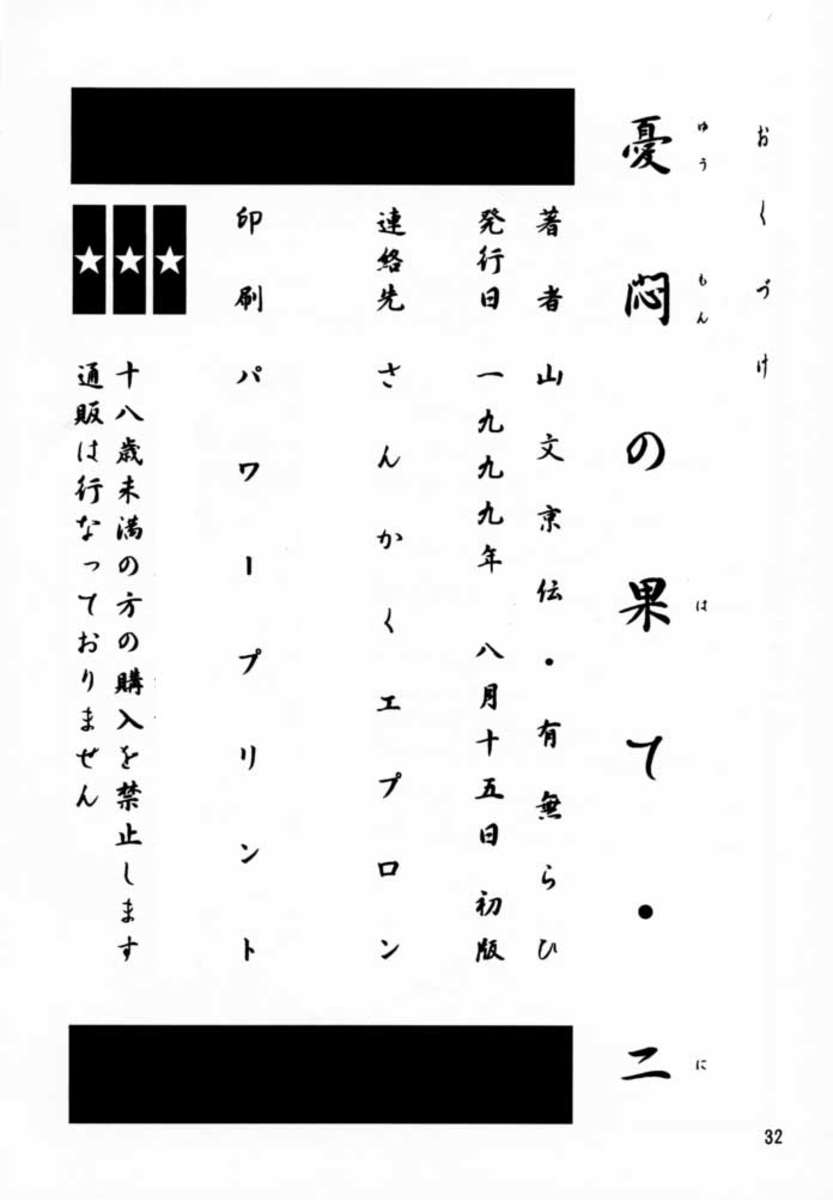 おくづけ
憂悶の果て・二
ゆうもん は に
著者 山文京伝・有無らひ
発行日 一九九九年 八月十五日 初版
連絡先 さんかくエプロン
印刷 パワープリント
十八歳未満の方の購入を禁止します
通販は行なっておりません
32